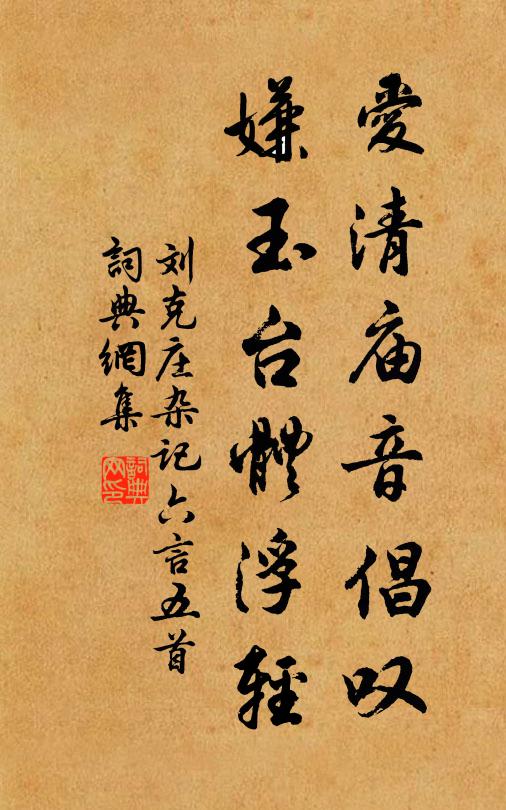 愛清庙音倡叹
嫌玉台體浮輕
刘克庄杂记六言五首
詞典網集
詞典網印